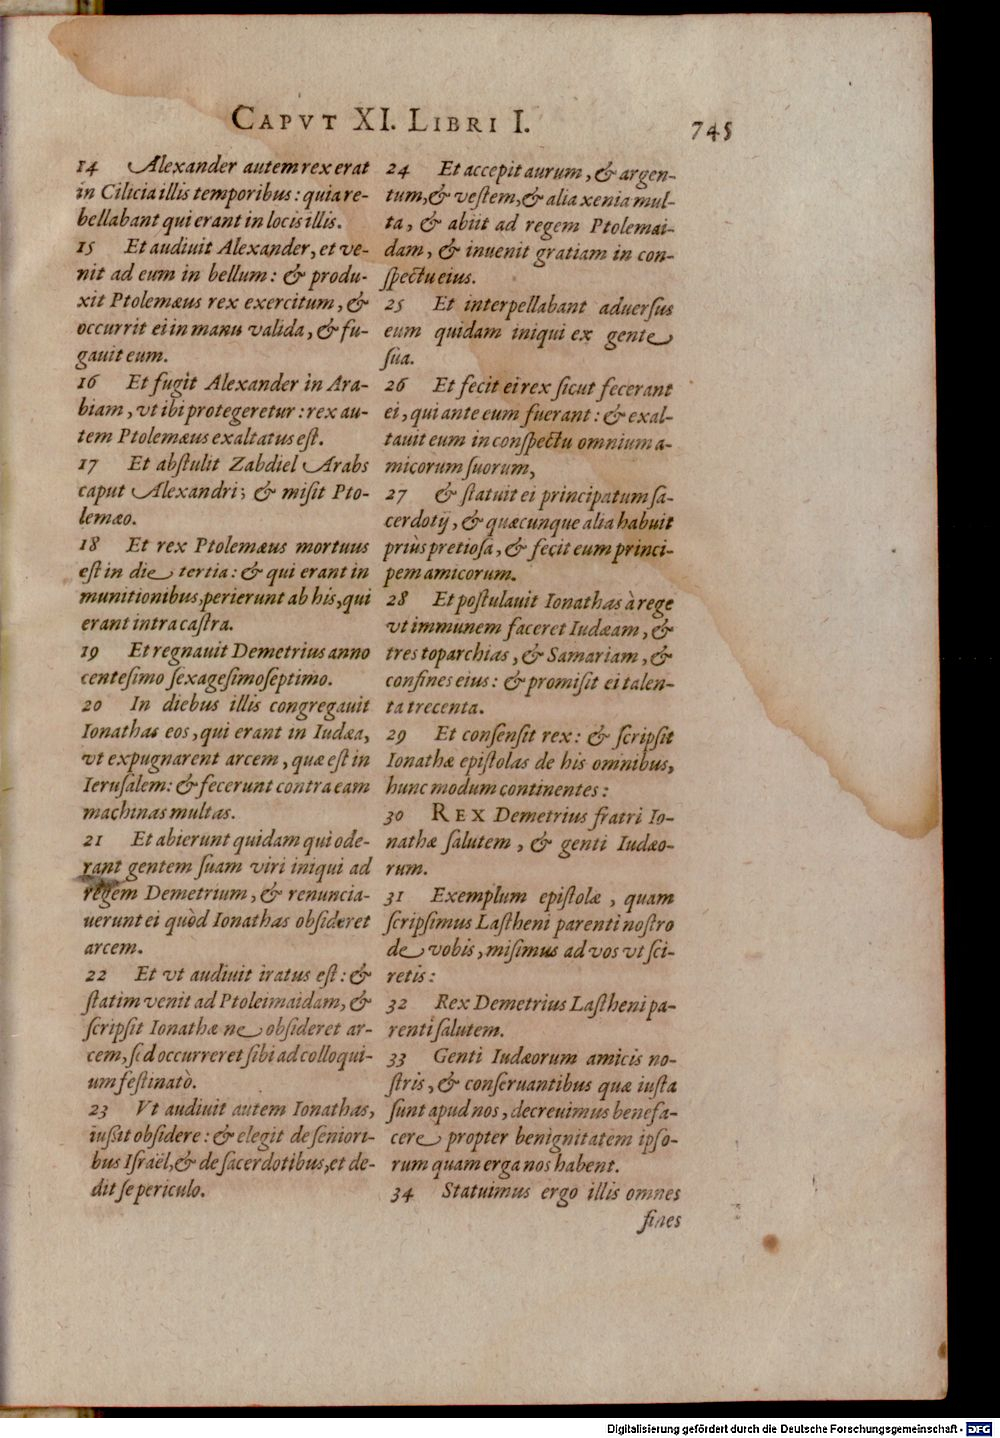 CAPVT XI. LIBRI I.
745
14 Alexander autem rex erat
in Cilicia illis temporibus: quia re-
bellabant qui erant in locis illis.
15 Et audiuit Alexander, et ve-
nit ad eum in bellum: & produ-
xit Ptolemæus rex exercitum, &
occurrit ei in manu valida, & fu-
gauit eum.
16 Et fugit Alexander in Ara-
biam, vt ibi protegeretur: rex au-
tem Ptolemæus exaltatus est.
17 Et abstulit Zabdiel Arabs
caput Alexandri; & misit Pto-
lemæo.
18 Et rex Ptolemæus mortuus
est in die tertia: & qui erant in
munitionibus, perierunt ab his, qui
erant intra castra.
19 Et regnauit Demetrius anno
centesimo sexagesimoseptimo.
20 In diebus illis congregauit
Ionathas eos, qui erant in Iudæa,
vt expugnarent arcem, quæ est in
Ierusalem: & fecerunt contra eam
machinas multas.
21 Et abierunt quidam qui ode-
rant gentem suam viri iniqui ad
regem Demetrium, & renuncia-
uerunt ei quòd Ionathas obsideret
arcem.
22 Et vt audiuit iratus est: &
statim venit ad Ptoleimaidam, &
scripsit Ionathæ ne obsideret ar-
cem, sed occurreret sibi ad colloqui-
um festinatò.
23 Vt audiuit autem Ionathas,
iussit obsidere: & elegit de seniori-
bus Israël, & de sacerdotibus, et de-
dit se periculo.
24 Et accepit aurum, & argen-
tum, & vestem, & alia xenia mul-
ta, & abiit ad regem Ptolemai-
dam, & inuenit gratiam in con-
spectu eius.
25 Et interpellabant aduersus
eum quidam iniqui ex gente
sua.
26 Et fecit ei rex sicut fecerant
ei, qui ante eum fuerant: & exal-
tauit eum in conspectu omnium a-
micorum suorum,
27 & statuit ei principatum sa-
cerdotij, & quæcunque alia habuit
priùs pretiosa, & fecit eum princi-
pem amicorum.
28 Et postulauit Ionathas à rege
vt immunem faceret Iudæam, &
tres toparchias, & Samariam, &
confines eius: & promisit ei talen-
ta trecenta.
29 Et consensit rex: & scripsit
Ionathæ epistolas de his omnibus,
hunc modum continentes:
30 REX Demetrius fratri Io-
nathæ salutem, & genti Iudæo-
rum.
31 Exemplum epistolæ, quam
scripsimus Lastheni parenti nostro
de vobis, misimus ad vos vt sci-
retis:
32 Rex Demetrius Lastheni pa-
renti salutem.
33 Genti Iudæorum amicis no-
stris, & conseruantibus quæ iusta
sunt apud nos, decreuimus benefa-
cere propter benignitatem ipso-
rum quam erga nos habent.
34 Statuimus ergo illis omnes
fines
Digitalisierung gefördert durch die Deutsche Forschungsgemeinschaft - DFG